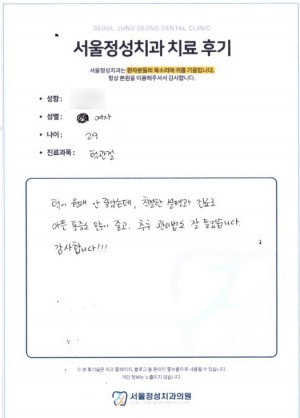 SEOUL JUNG SEONG DENTAL CLINIC
서울정성치과 치료 후기
서울정성치과는 환자분들의 목소리에 귀를 기울입니다.
항상 본원을 이용해주셔서 감사합니다.
• 성함 :
• 성별 : 여자
• 나이 : 29
• 진료과목 : 턱관절
턱이 원래 안 좋았는데, 친절한 설명과 진료로
아픈 통증도 많이 줄고, 추후 관리법도 잘 들었습니다.
감사합니다!!!
* 본 후기글은 저희 홈페이지, 블로그 등 온라인 홍보용으로 사용될 수 있습니다.
개인 정보는 노출되지 않습니다.
서울정성치과의원